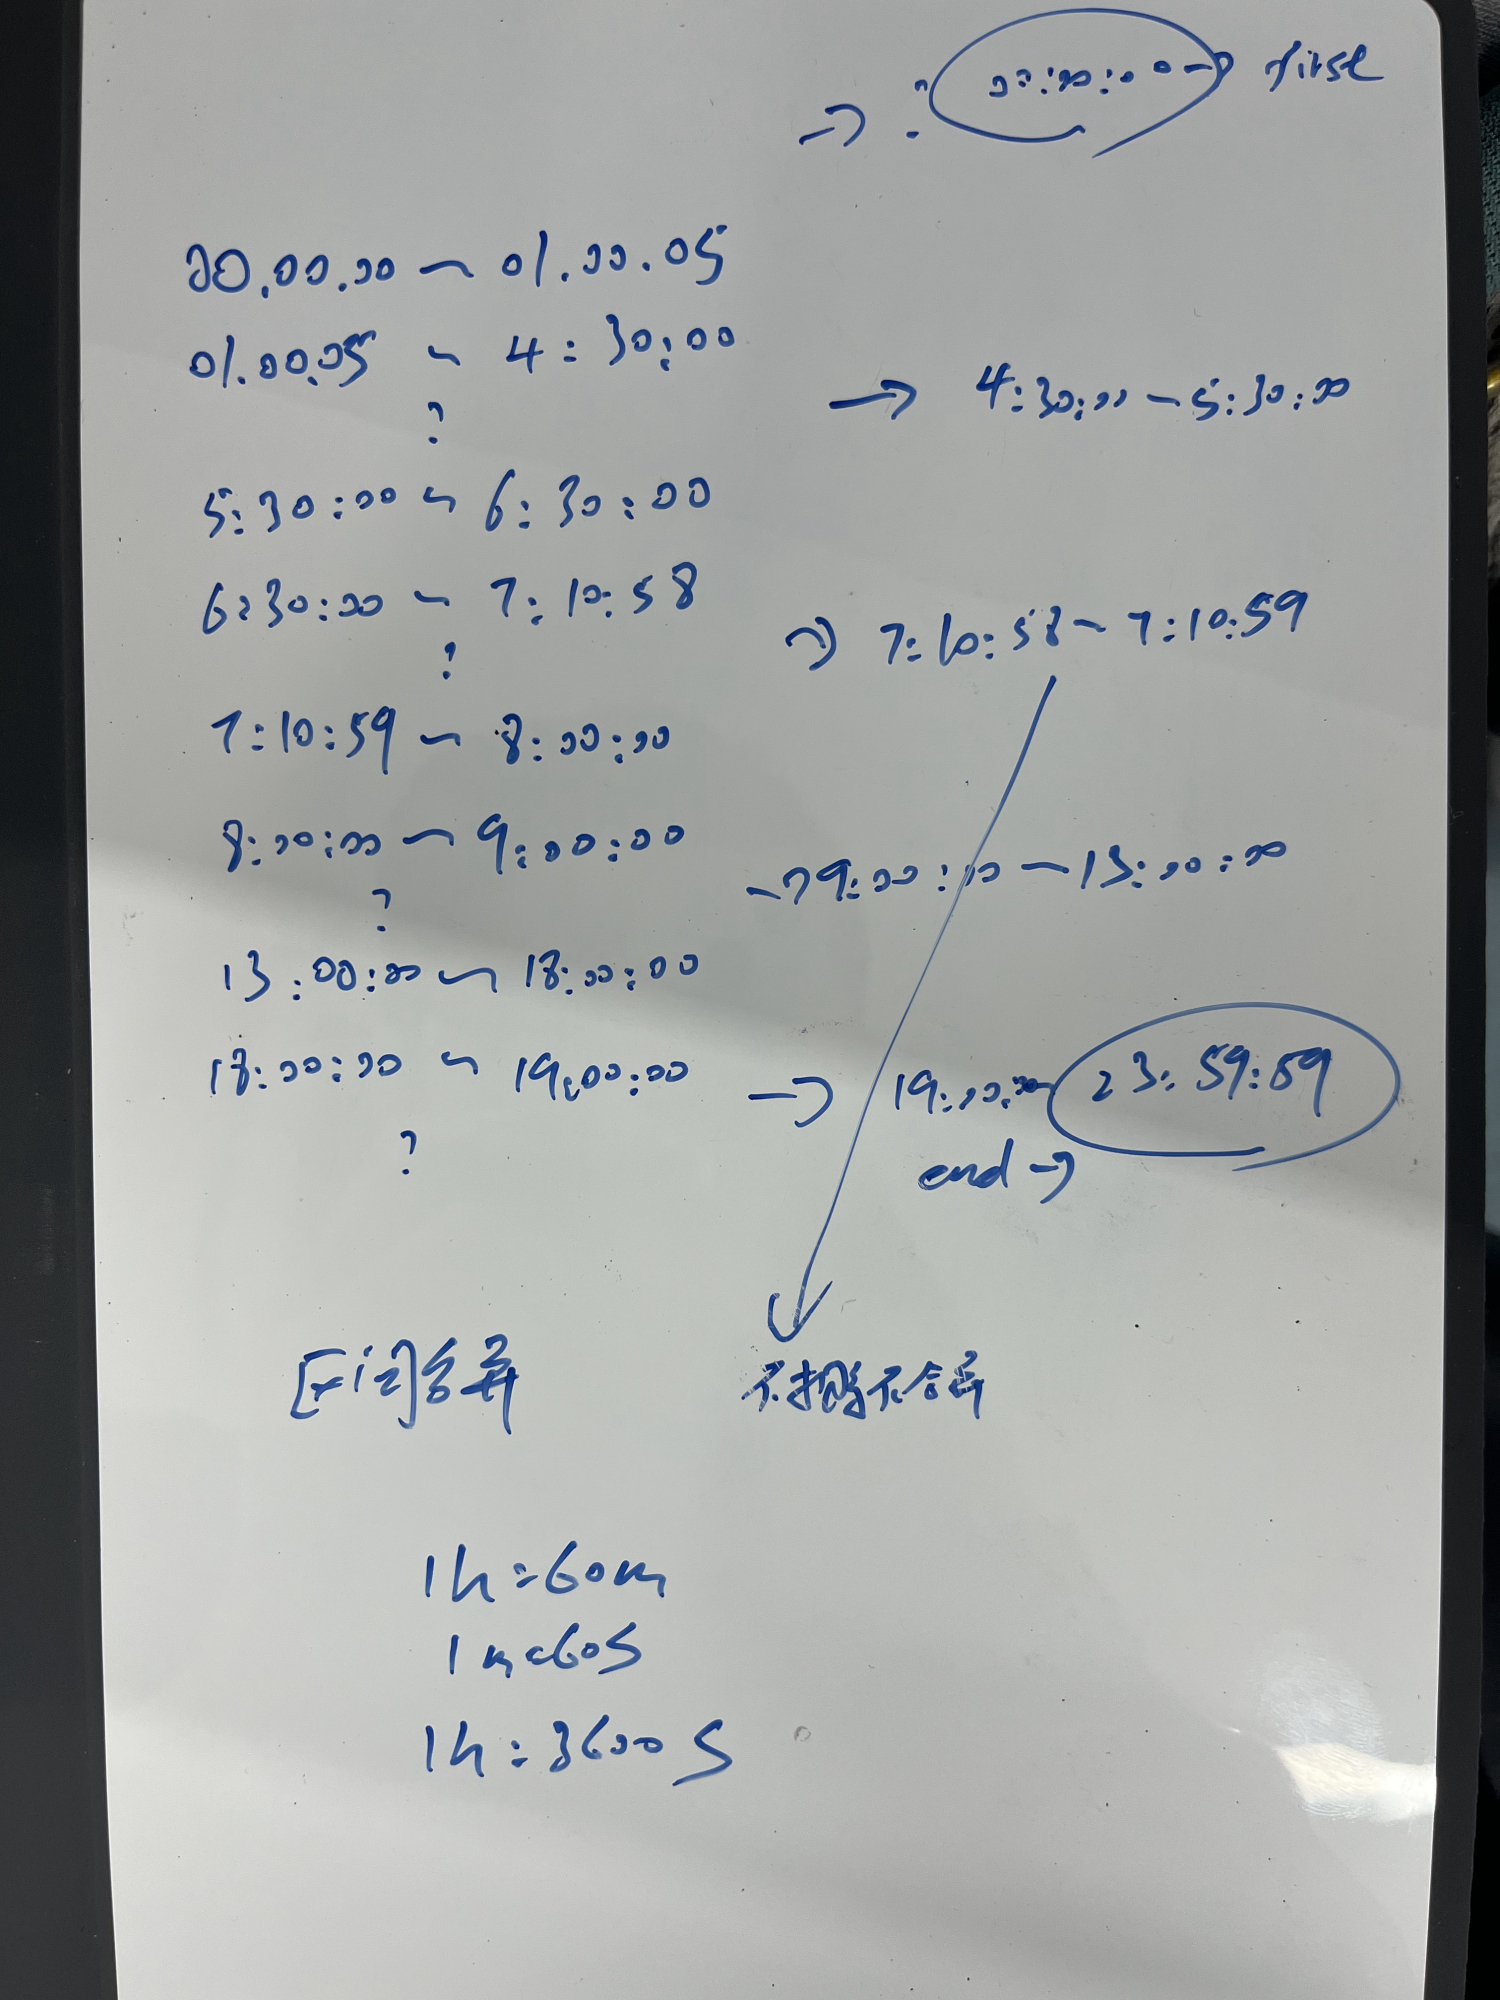 → ? 00:00:00 → first
00.00.00 ~ 01.00.05
01.00.05 ~ 4:30:00
? → 4:30:00 - 5:30:00
5:30:00 ~ 6:30:00
6:30:00 ~ 7:10:58
? → 7:10:58 ~ 7:10:59
7:10:59 ~ 8:00:00
8:00:00 ~ 9:00:00
? → 9:00:00 - 13:00:00
13:00:00 ~ 18:00:00
18:00:00 ~ 19:00:00
? → 19:00:00 - 23:59:59
end →
合并 不不合并
1h=60m
1m=60s
1h=3600s